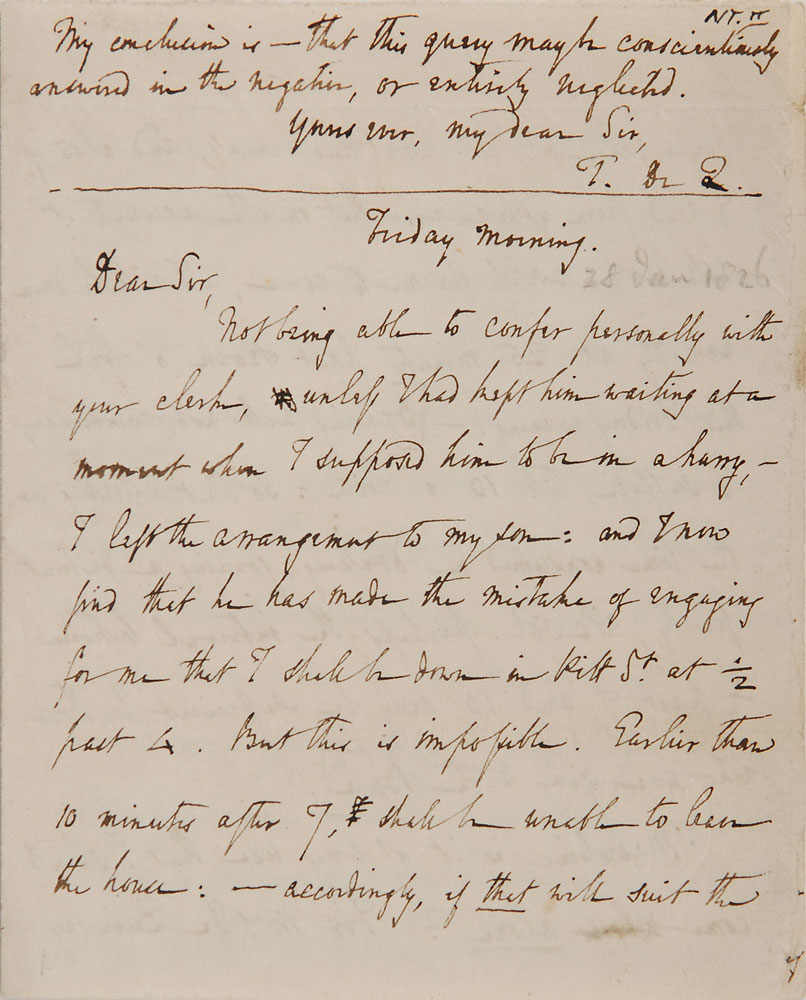 My conclusion is — that this query may be conscientiously
answered in the negative, or entirely neglected.
Yours ever, my dear Sir,
T. De Q.
Friday Morning.
28 Jan 1826
Dear Sir,
Not being able to confer personally with
your clerk, unless I had kept him waiting at a
moment when I supposed him to be in a hurry, —
I left the arrangement to my son: and I now
find that he has made the mistake of engaging
for me that I shall be down in Pitt St. at ½
past 4. But this is impossible. Earlier than
10 minutes after 7, I shall be unable to leave
the house: — accordingly, if that will suit the